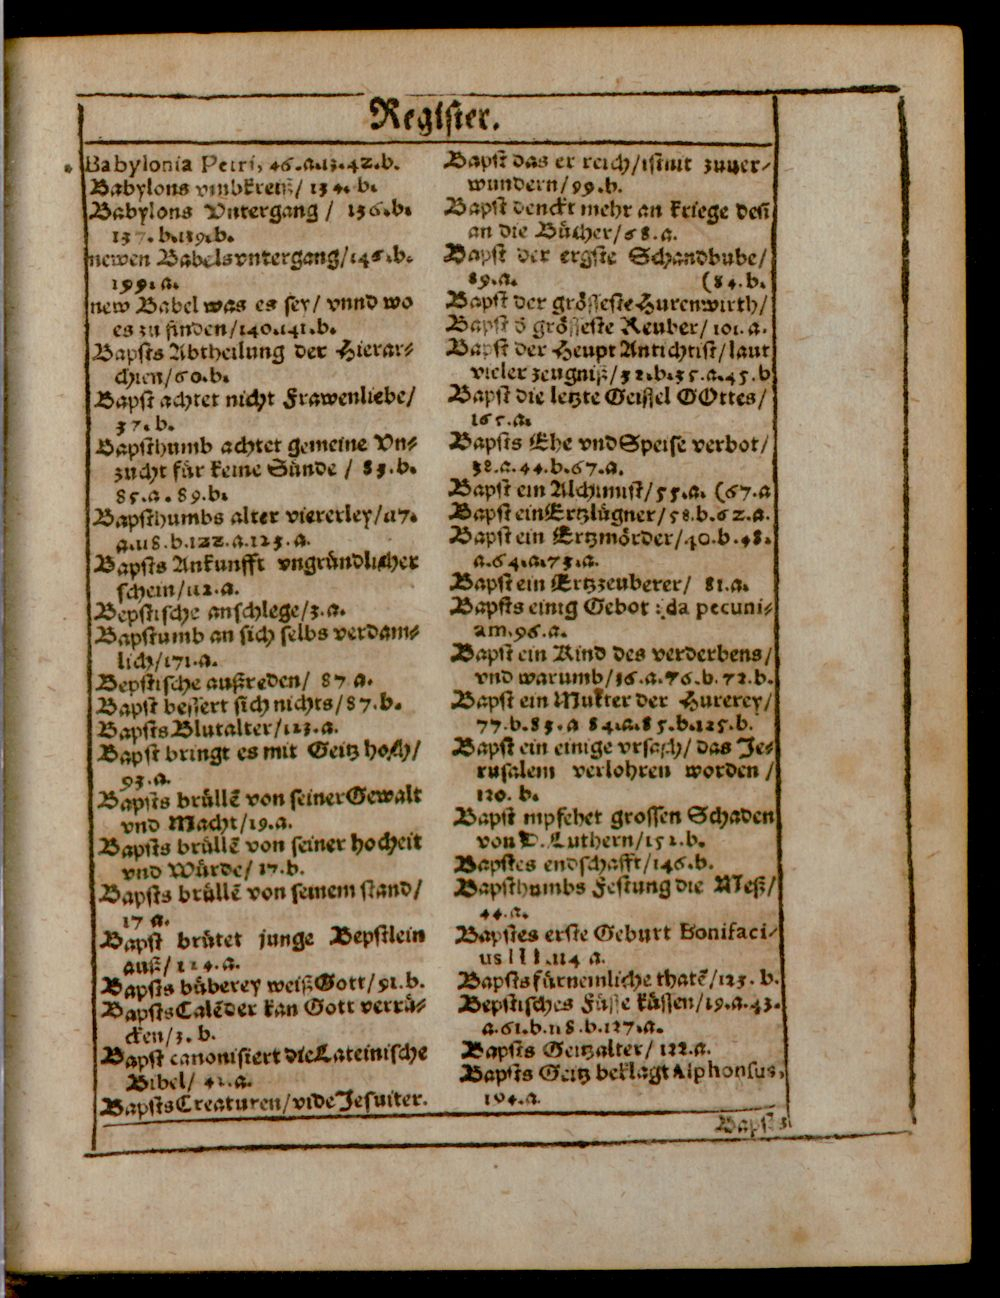 Register.
Babylonia Petri, 46.a.13.42.b.
Babylons vmbkreiß/ 134. b.
Babylons Vntergang / 136.b.
137. b.139.b.
newen Babels vntergang/146.b.
199.a.
new Babel was es sey/ vnnd wo
es zu finden/140.141.b.
Bapsts Abtheilung der Hierar-
chien/60.b.
Bapst achtet nicht Frawenliebe/
37. b.
Bapsthumb achtet gemeine Vn-
zucht für keine Sünde / 83.b.
85.a. 89.b.
Bapsthumbs alter viererley/117.
a.118.b.122.a.123.a.
Bapsts Ankunfft vngründlicher
schein/112.a.
Bepstische anschlege/3.a.
Bapstumb an sich selbs verdam-
lich/171.a.
Bepstische außreden/ 87 a.
Bapst bessert sich nichts/87.b.
Bapsts Blutalter/123.a.
Bapst bringt es mit Geitz hoch/
93.a.
Bapsts brüllẽ von seiner Gewalt
vnd Macht/19.a.
Bapsts brüllẽ von seiner hocheit
vnd Würde/ 17.b.
Bapsts brüllẽ von seinem stand/
17 a.
Bapst brütet junge Bepstlein
auß/ 124.a.
Bapsts büberey weiß Gott/91.b.
Bapsts Calẽder kan Gott verrü-
cken/3. b.
Bapst canonisiert die Lateinische
Bibel/ 42.a.
Bapsts Creaturen/vide Jesuiter.
Bapst das er reich/ist nit zuuer-
wundern/99.b.
Bapst denckt mehr an kriege deñ
an die Bücher/68.a.
Bapst der ergste Schandbube/
89.a. (84.b.
Bapst der grösseste Hurenwirth/
Bapst d̃ grösseste Reuber/ 101.a.
Bapst der Heupt Antichtist/laut
vieler zeugniß/32.b.35.a.45.b
Bapst die letzte Geissel GOttes/
165.a.
Bapsts Ehe vnd Speise verbot/
38.a.44.b.67.a.
Bapst ein Alchimist/55.a. (67.a
Bapst ein Ertzlügner/58.b.62.a.
Bapst ein Ertzmörder/40.b.48.
a.64.a.73.a.
Bapst ein Ertzzeuberer/ 81.a.
Bapsts einig Gebot : da pecuni-
am.96.a.
Bapst ein Kind des verderbens/
vnd warumb/36.a.76.b.72.b.
Bapst ein Mutter der Hurerey/
77.b.83.a 84.a.85.b.125.b.
Bapst ein einige vrsach/ das Je-
rusalem verlohren worden /
120. b.
Bapst mpfehet grossen Schaden
von D. Luthern/152.b.
Bapstes endschafft/146.b.
Bapsthumbs Festung die Meß/
44.a.
Bapstes erste Geburt Bonifaci-
us III.114 a.
Bapsts fürnemliche thatẽ/123. b.
Bepstisches Füsse küssen/19.a.43.
a.61.b.118.b.127.a.
Bapsts Geitzalter/ 122.a.
Bapsts Geitz beklagt Alphonsus,
104.a.
Bapsts